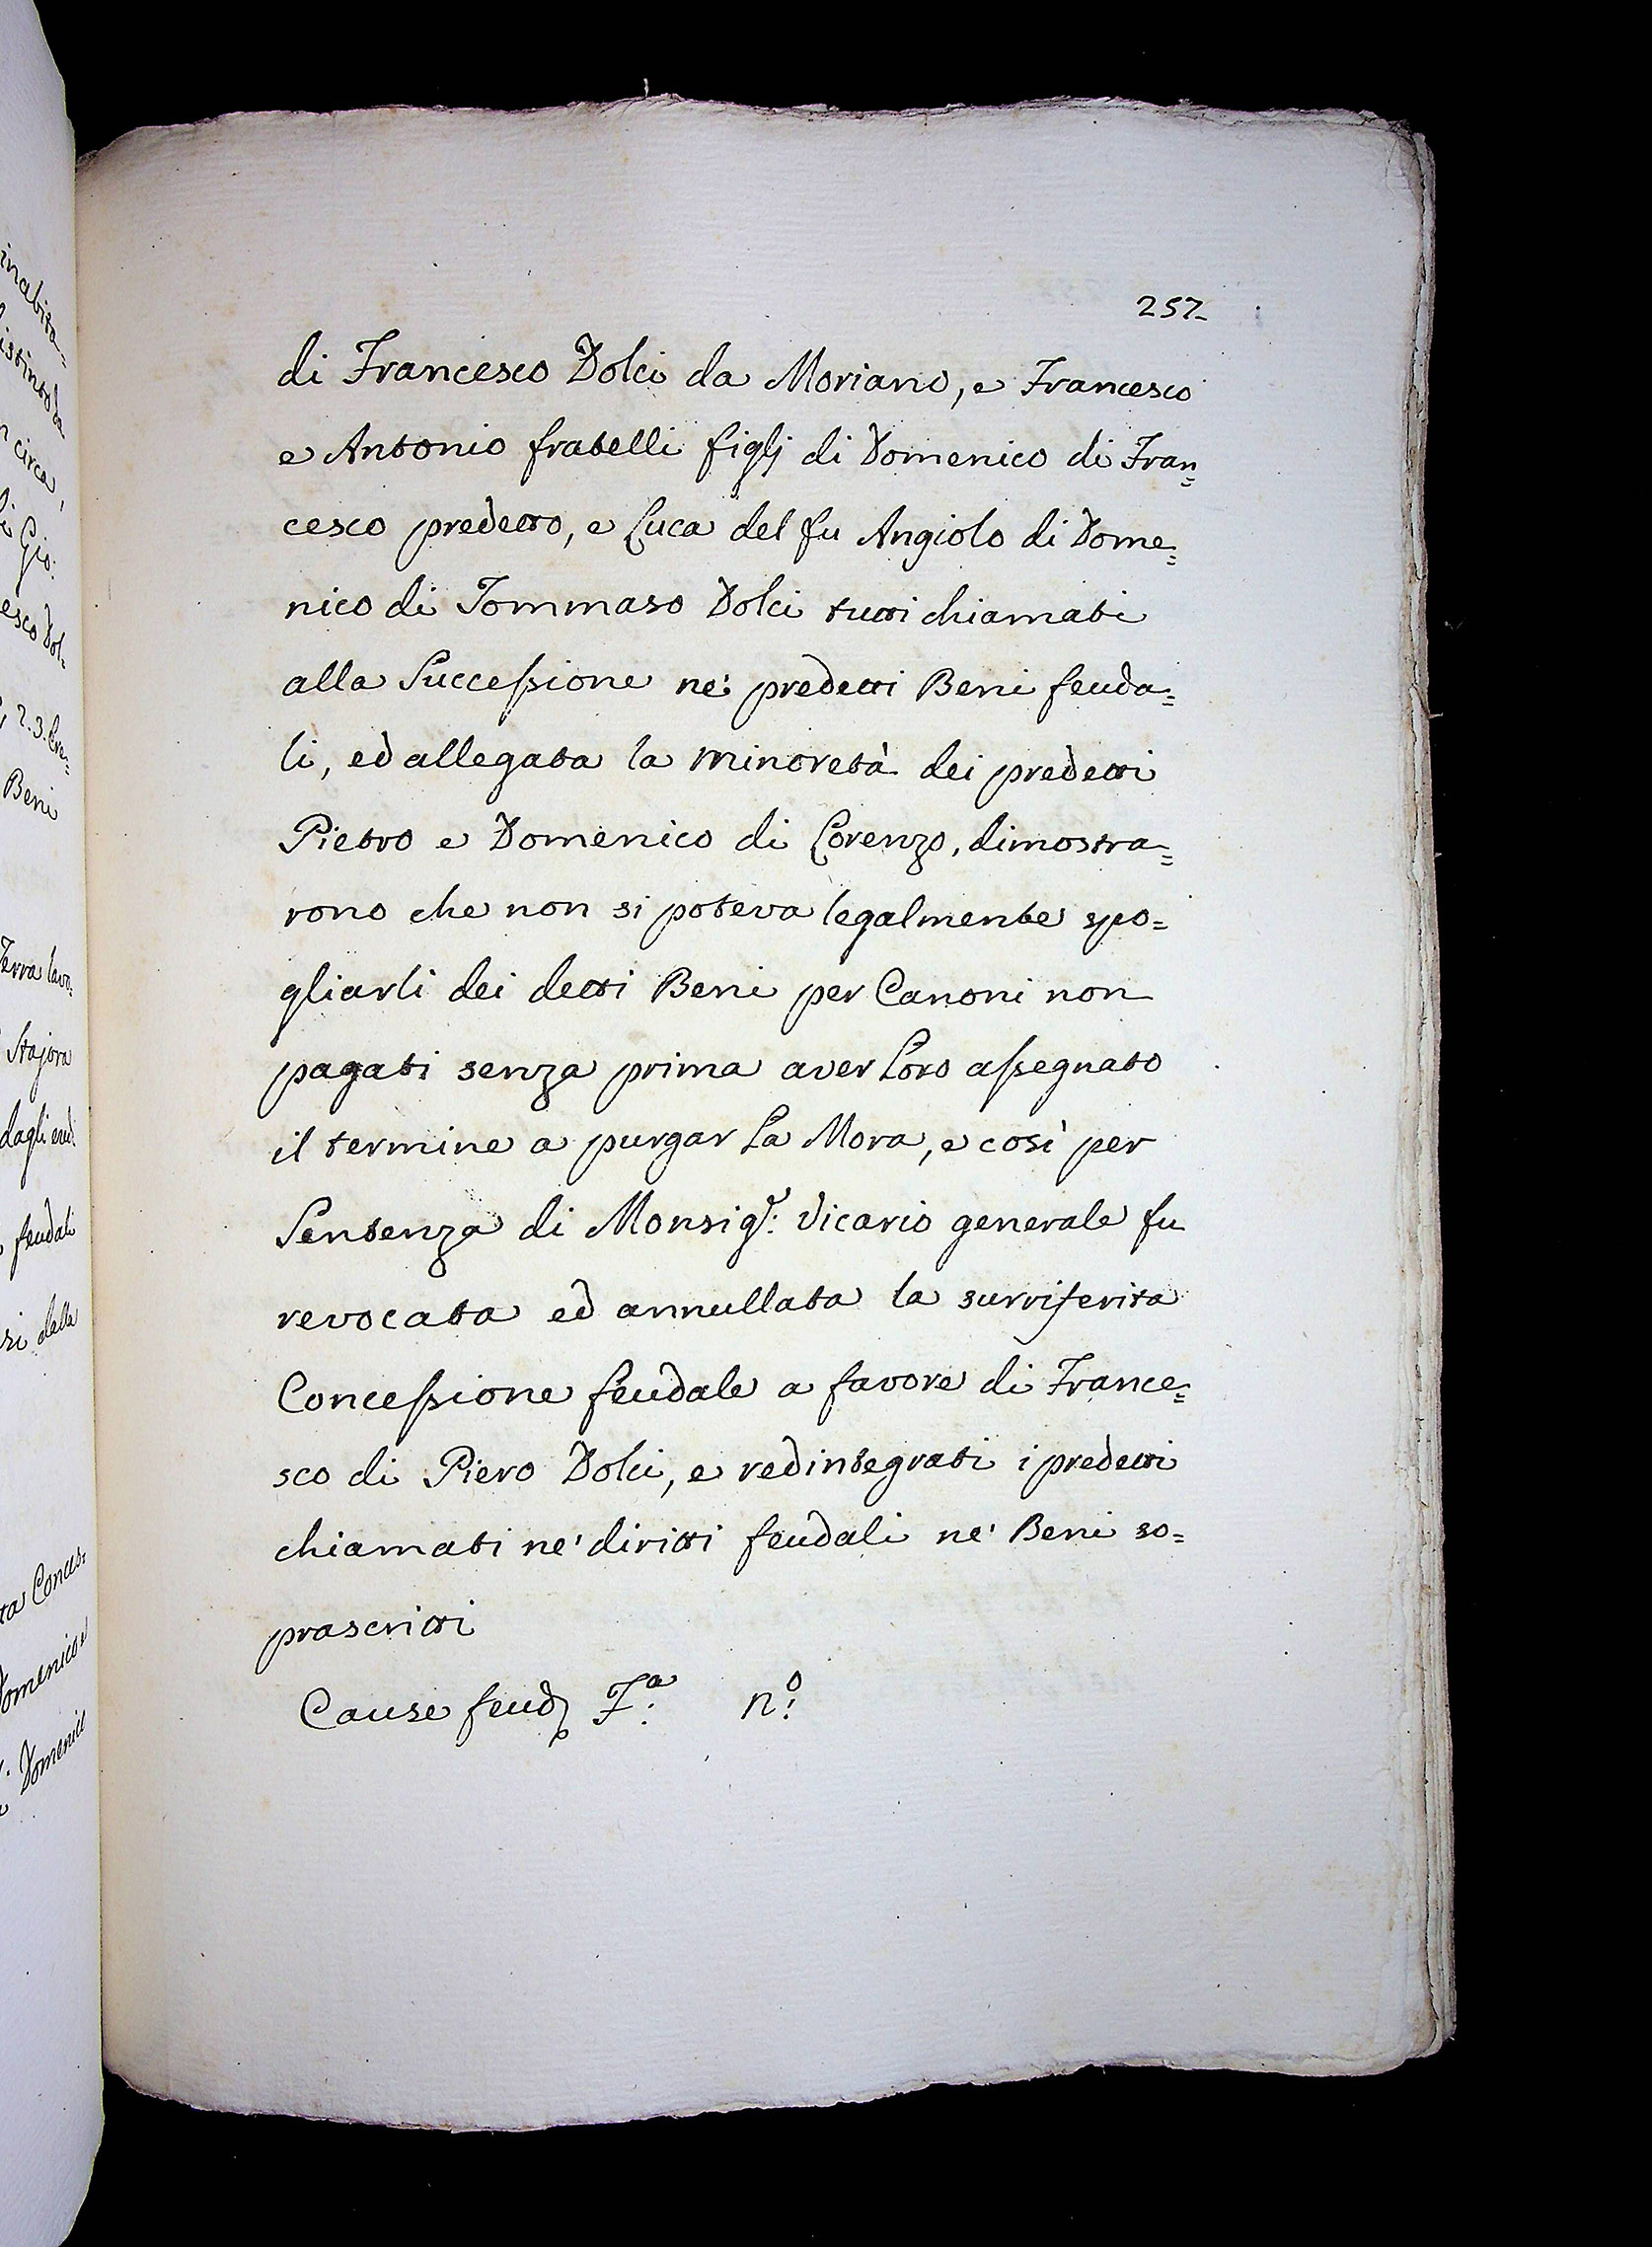 257.
di Francesco Dolci da Moriano, e Francesco
e Antonio fratelli figlj di Domenico di Fran=
cesco predetto, e Luca del fu Angiolo di Dome=
nico di Tommaso Dolci tutti chiamati
alla Successione ne' predetti Beni feuda=
li, ed allegata la minoretà dei predetti
Pietro e Domenico di Lorenzo, dimostra=
rono che non si poteva legalmente spo=
gliarli dei detti Beni per Canoni non
pagati senza prima aver Loro assegnato
il termine a purgar La Mora, e così per
Sentenza di Monsigr: Vicario generale fu
revocata ed annullata la surriferita
Concessione feudale a favore di France=
sco di Piero Dolci, e redintegrati i predetti
chiamati ne' diritti feudali ne' Beni so=
prascritti
Cause feud Fa: no:
inabita=
circa,
Gio:
esco Dol=
2.3.
Beni
Terra lavo=
Stajora
dagli
feudali
della
Domenico
Domenico